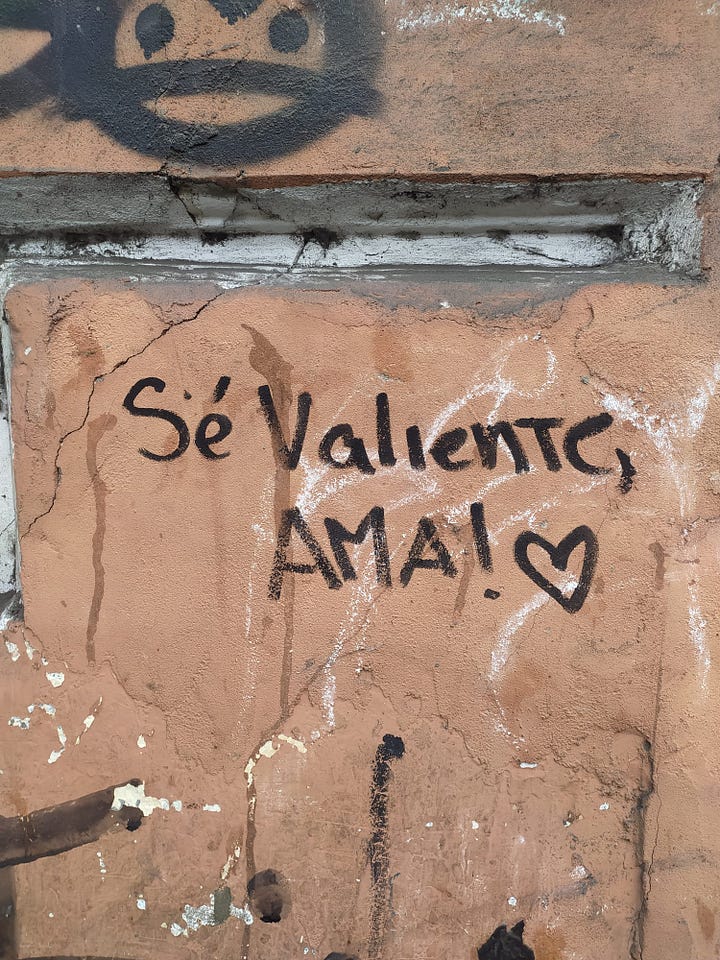 Sé Valiente,
AMA! ♡